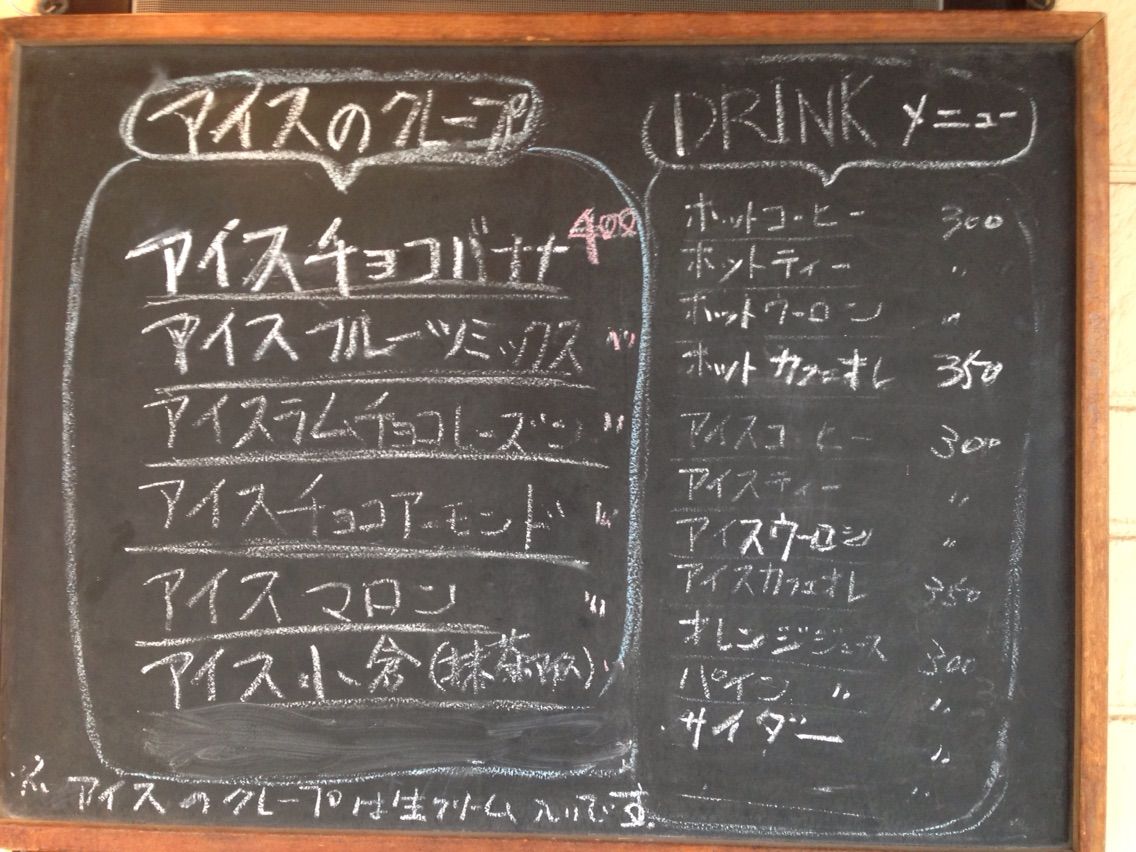 アイスのクレープ
アイスチョコバナナ 400
アイスフルーツミックス 〃
アイスラムチョコレーズン 〃
アイスチョコアーモンド 〃
アイスマロン 〃
アイス小倉(抹茶アイス) 〃
※ アイスのクレープは生クリーム入りです。
DRINK メニュー
ホットコーヒー 300
ホットティー 〃
ホットウーロン 〃
ホットカフェオレ 350
アイスコーヒー 300
アイスティー 〃
アイスウーロン 〃
アイスカフェオレ 350
オレンジジュース 300
パイン 〃 〃
サイダー 〃
〃